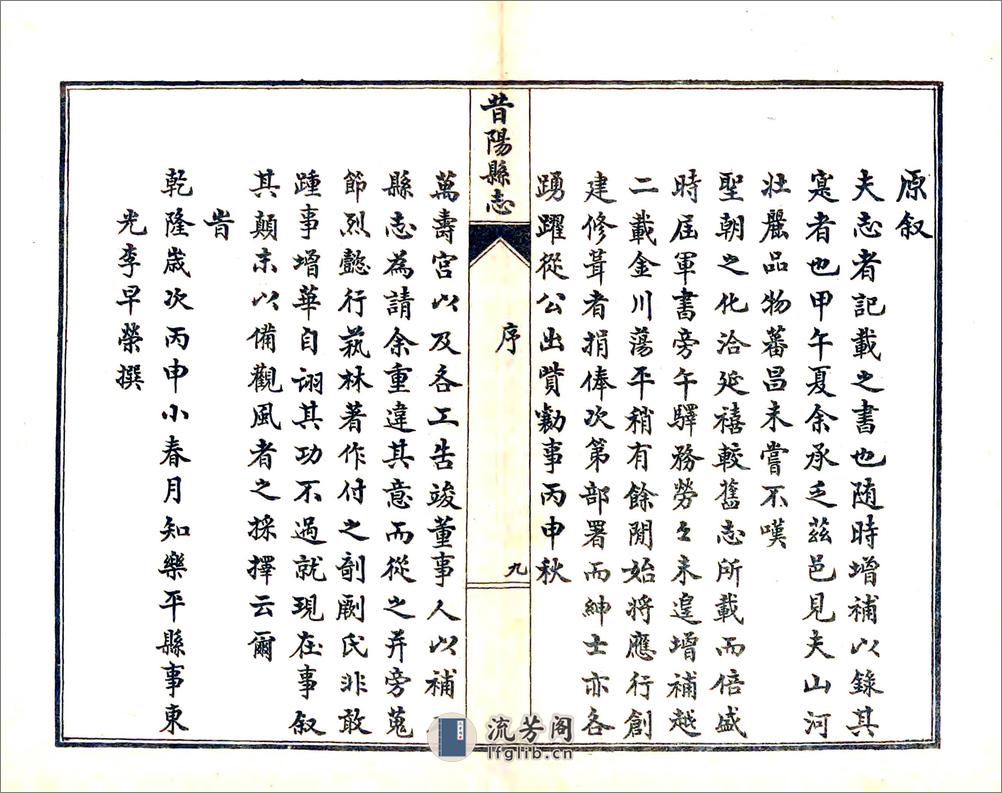 原叙
夫志者記載之書也随時增補以錄其
寔者也甲午夏余承乏茲邑見夫山河
壯麗品物蕃昌未嘗不嘆
聖朝之化洽延禧較舊志所載而倍盛
時屆軍書旁午驛務勞々未遑增補越
二載金川蕩平稍有餘閒始將應行創
建修葺者捐俸次第部署而紳士亦各
踴躍從公出貲勷事丙申秋
昔陽縣志
序
九
萬壽宮以及各工告竣董事人以補
縣志為請余重違其意而從之并旁蒐
節烈懿行蓺林著作付之剞劂氏非敢
踵事增華自詡其功不過就現在事叙
其顛末以備觀風者之採擇云爾
旹
乾隆歲次丙申小春月知樂平縣事東
光李早榮撰
流芳阁
lfglib.cn